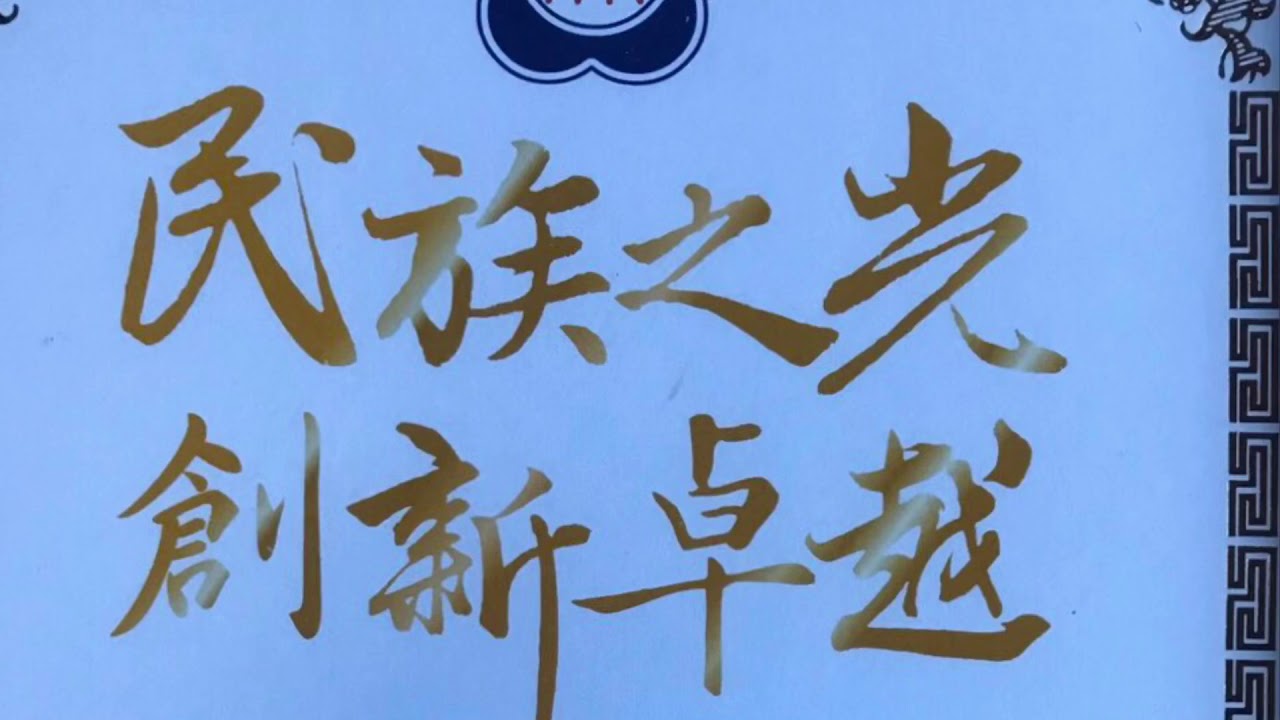 民族之光
創新卓越